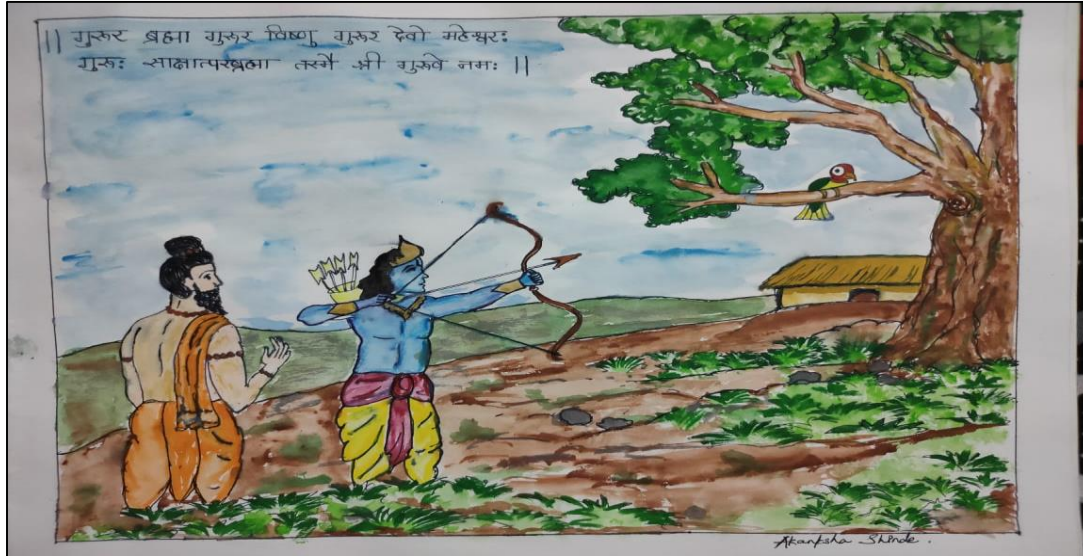 || गुरुर ब्रह्मा गुरुर विष्णु गुरुर देवो महेश्वरः
गुरुः साक्षात्परब्रह्मा तस्मै श्री गुरुवे नमः ||
Akanksha Shinde.